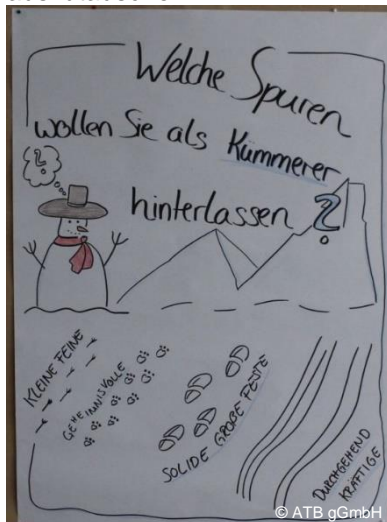 Welche Spuren
wollen Sie als Kümmerer
hinterlassen ?
?
KLEINE FEINE
GEHEIMNISVOLLE
SOLIDE GROßE FESTE
DURCHGEHEND
KRÄFTIGE
© ATB gGmbH